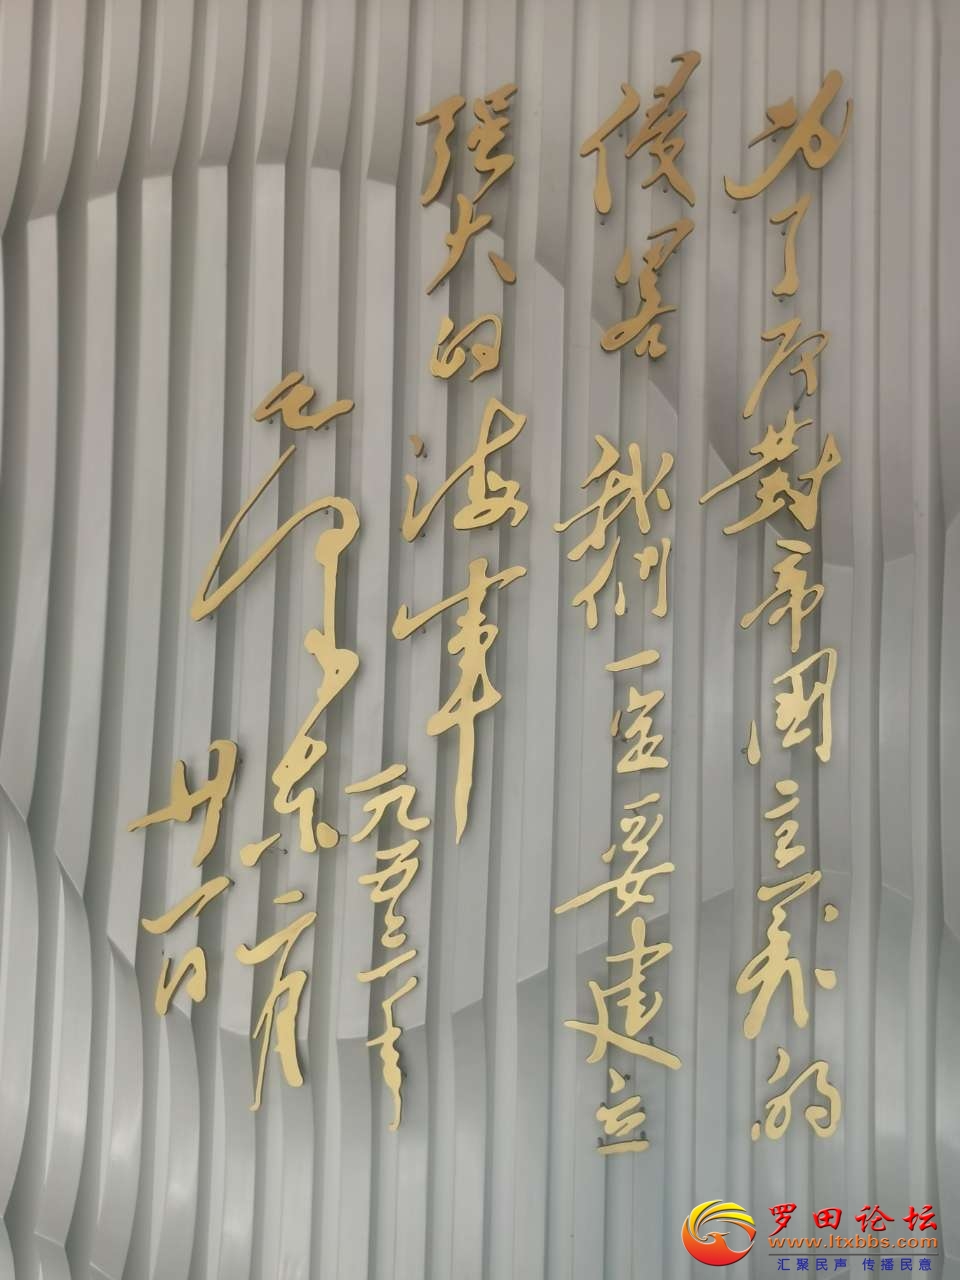 为了反對帝國主義的
侵畧 我們一定要建立
强大的海軍
毛泽东
一九五三年
二月
廿一日
罗田论坛
www.ltxbbs.com
汇聚民声 传播民意